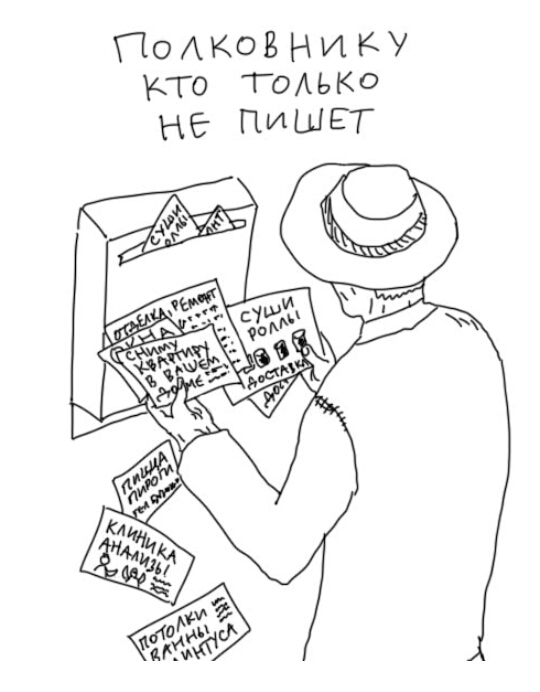 ПОЛКОВНИКУ
КТО ТОЛЬКО
НЕ ПИШЕТ
СУШИ
РОЛЛЫ
ОТДЕЛКА, РЕМОНТ
ОКНА
СНИМУ
КВАРТИРУ
В ВАШЕМ
ДОМЕ
СУШИ
РОЛЛЫ
ДОСТАВКА
ДОС
ПИЦЦА
ПИРОГИ
КЛИНИКА
АНАЛИЗЫ
ПОТОЛКИ
ВАННЫ
ПЛИНТУСА